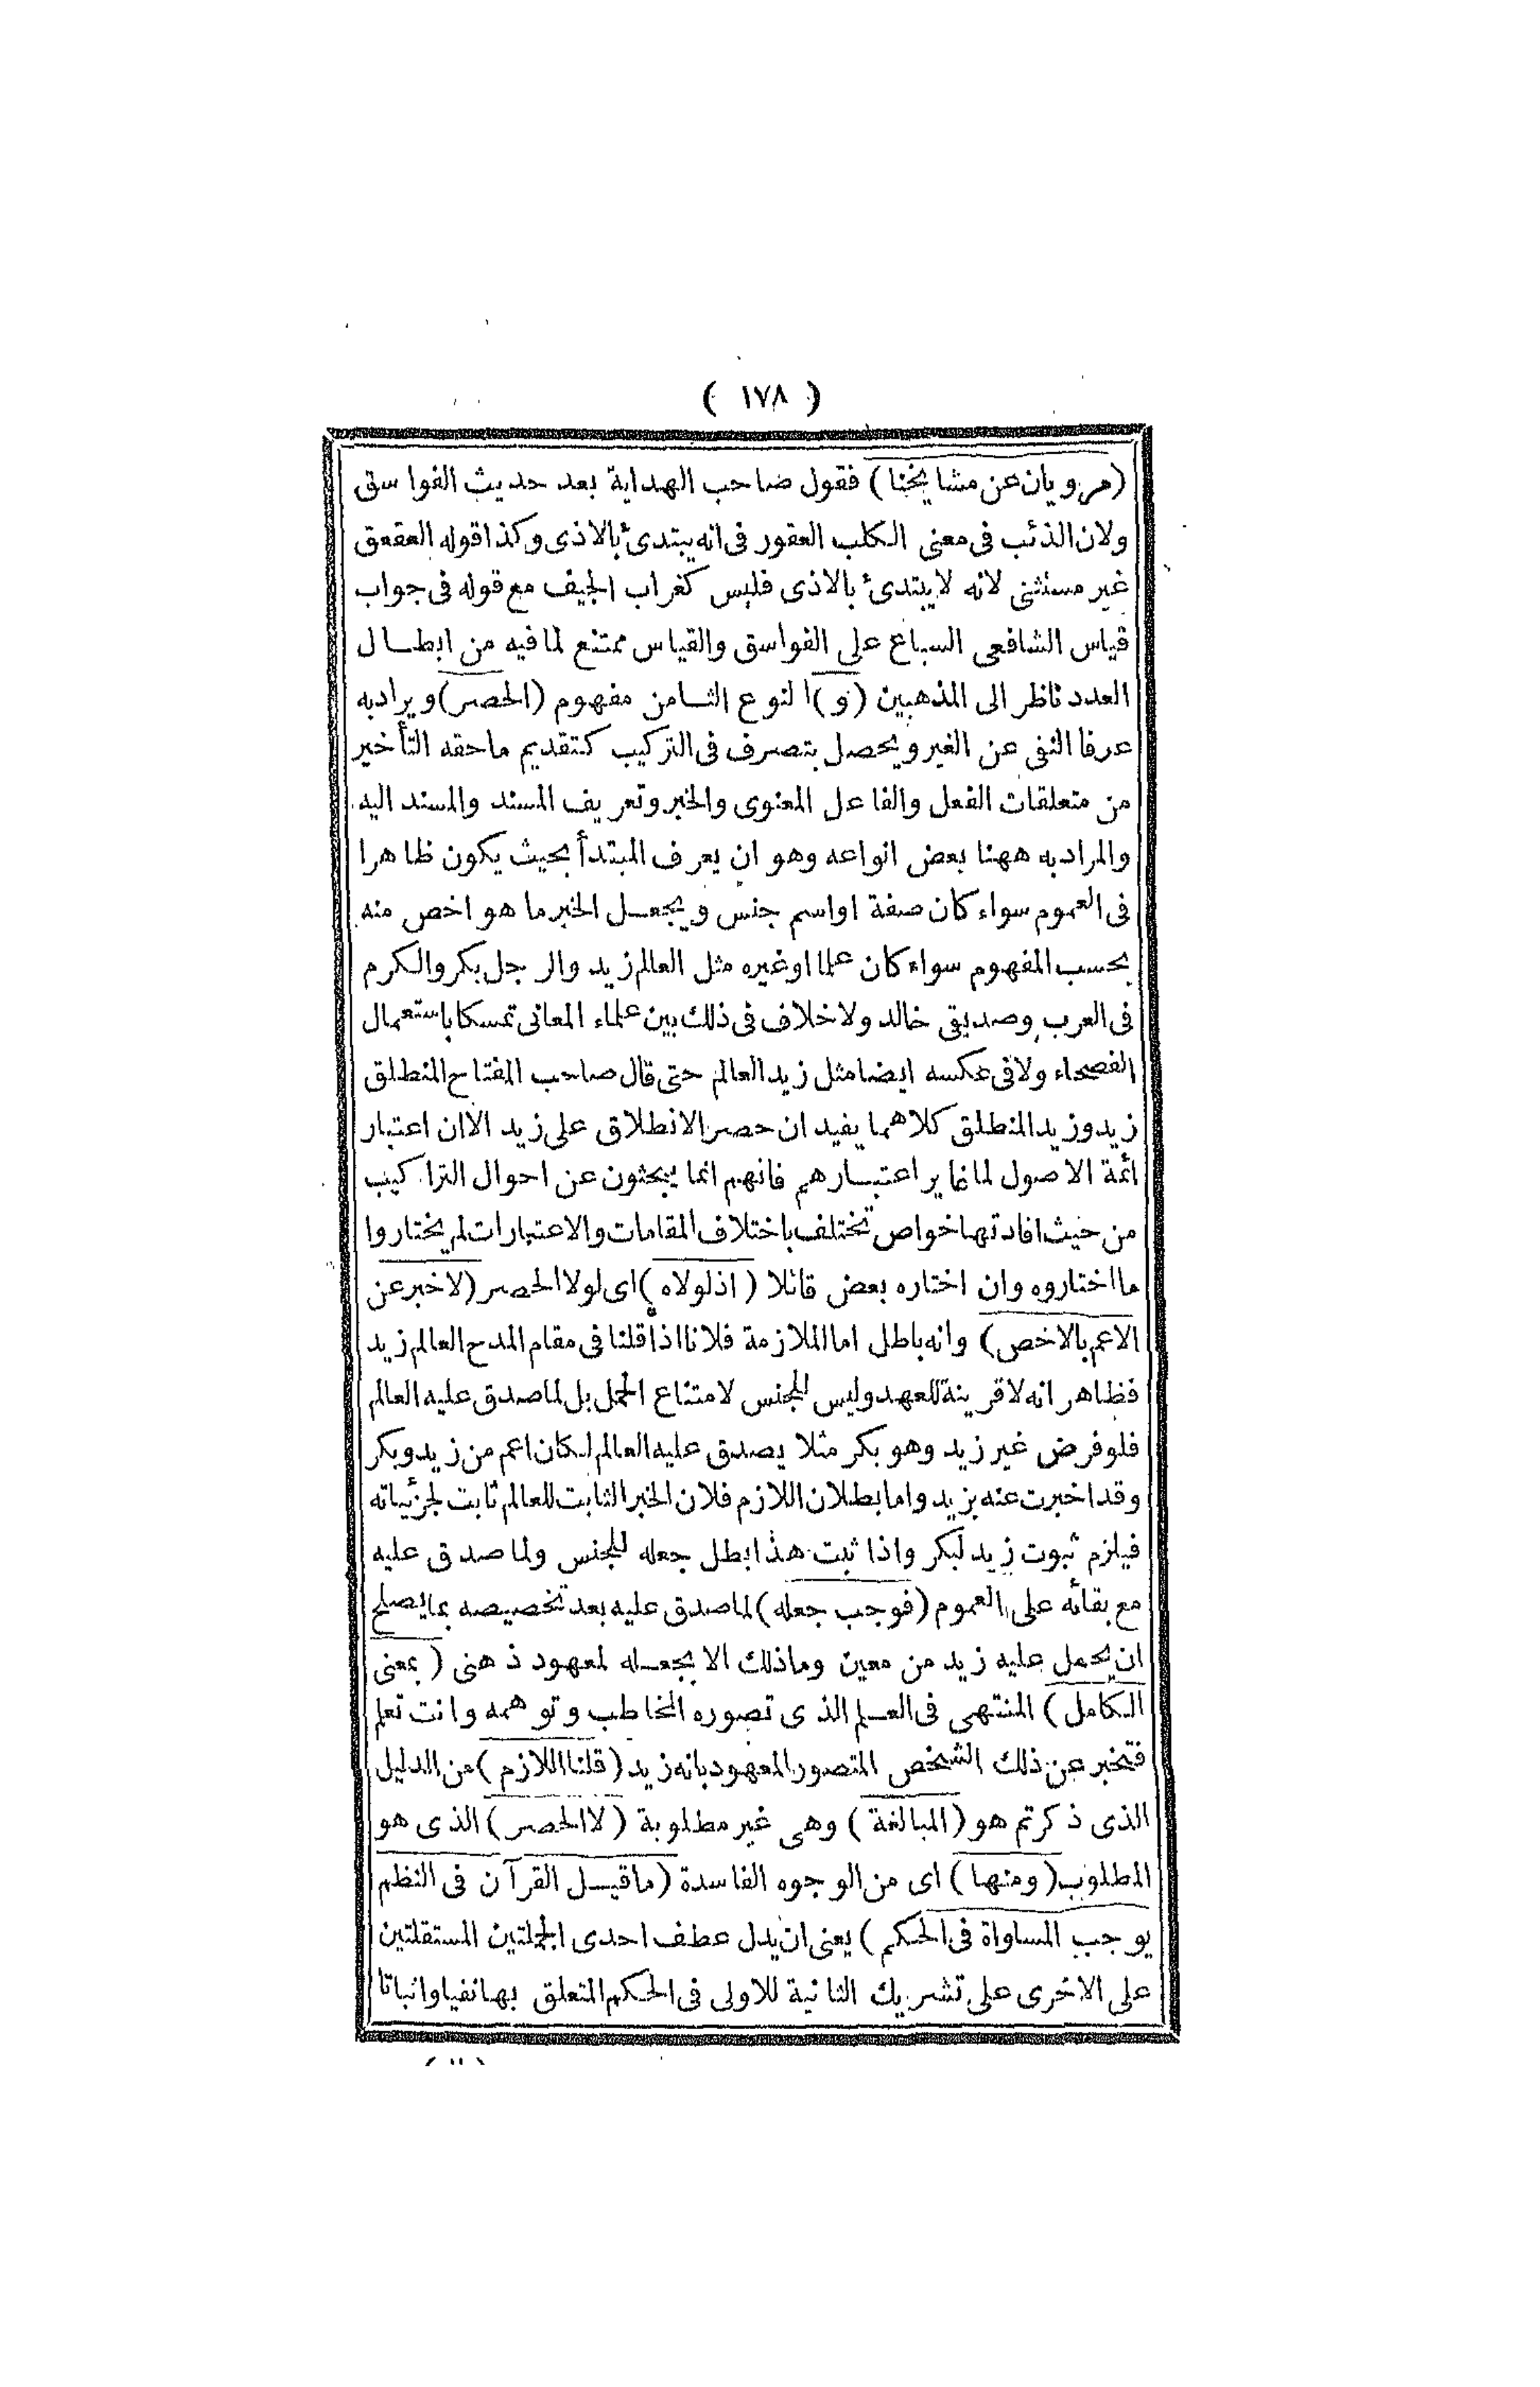 ( ١٧٨ )
(مرويان عن مشايخنا) فقول صاحب الهداية بعد حديث الفواسق
ولان الذئب فى معنى الكلب العقور فى انه يبتدئ بالاذى وكذا قوله العقعق
غير مستثنى لانه لا يبتدئ بالاذى فليس كغراب الجيف مع قوله فى جواب
قياس الشافعى السباع على الفواسق والقياس ممتنع لما فيه من ابطال
العدد ناظر الى المذهبين (و) النوع الثامن مفهوم (الحصر) ويراد به
عرفا النفى عن الغير ويحصل بتصرف فى التركيب كتقديم ما حقه التأخير
من متعلقات الفعل والفاعل المعنوى والخبر وتعريف المسند والمسند اليه
والمراد به ههنا بعض انواعه وهو ان يعرف المبتدأ بحيث يكون ظاهرا
فى العموم سواء كان صفة او اسم جنس ويجعل الخبر ما هو اخص منه
بحسب المفهوم سواء كان علما او غيره مثل العالم زيد والرجل بكر والكرم
فى العرب وصديقى خالد ولا خلاف فى ذلك بين علماء المعانى تمسكا باستعمال
الفصحاء ولا فى عكسه ايضا مثل زيد العالم حتى قال صاحب المفتاح المنطلق
زيد وزيد المنطلق كلاهما يفيد ان حصر الانطلاق على زيد الا ان اعتبار
ائمة الاصول لما غاير اعتبارهم فانهم انما يبحثون عن احوال التراكيب
من حيث افادتها خواص تختلف باختلاف المقامات والاعتبارات لم يختاروا
ما اختاروه وان اختاره بعض قائلا (اذ لولاه) اى لولا الحصر (لاخبر عن
الاعم بالاخص) وانه باطل اما الملازمة فلانا اذا قلنا فى مقام المدح العالم زيد
فظاهر انه لا قرينة للعهد وليس للجنس لامتناع الحمل بل لما صدق عليه العالم
فلو فرض غير زيد وهو بكر مثلا يصدق عليه العالم لكان اعم من زيد وبكر
وقد اخبرت عنه بزيد واما بطلان اللازم فلان الخبر الثابت للعالم ثابت لجزئياته
فيلزم ثبوت زيد لبكر واذا ثبت هذا بطل جعله للجنس ولما صدق عليه
مع بقائه على العموم (فوجب جعله) لما صدق عليه بعد تخصيصه بما يصلح
ان يحمل عليه زيد من معين وما ذلك الا بجعله لمعهود ذهنى (بمعنى
الكامل) المنتهى فى العلم الذى تصوره المخاطب وتوهمه وانت تعلم
فتخبر عن ذلك الشخص المتصور المعهود بانه زيد (قلنا اللازم) من الدليل
الذى ذكرتم هو (المبالغة) وهى غير مطلوبة (لا الحصر) الذى هو
المطلوب (ومنها) اى من الوجوه الفاسدة (ما قيل القرآن فى النظم
يوجب المساواة فى الحكم) يعنى ان يدل عطف احدى الجملتين المستقلتين
على الاخرى على تشريك الثانية للاولى فى الحكم المتعلق بها نفيا واثباتا